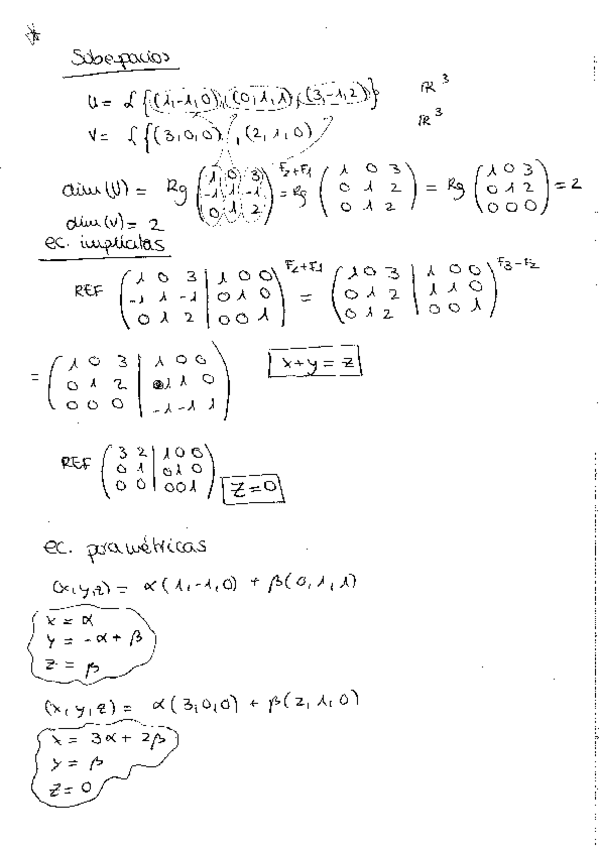 Subespacios
U = L {(1,-1,0), (0,1,1), (3,-1,2)} ℝ³
V = L {(3,0,0), (2,1,0) ℝ³
dim(U) = Rg ( 1 0 3 / -1 1 -1 / 0 1 2 ) F2+F1 = Rg ( 1 0 3 / 0 1 2 / 0 1 2 ) = Rg ( 1 0 3 / 0 1 2 / 0 0 0 ) = 2
dim(V) = 2
ec. implícitas
REF ( 1 0 3 | 1 0 0 / -1 1 -1 | 0 1 0 / 0 1 2 | 0 0 1 ) F2+F1 = ( 1 0 3 | 1 0 0 / 0 1 2 | 1 1 0 / 0 1 2 | 0 0 1 ) F3-F2
= ( 1 0 3 | 1 0 0 / 0 1 2 | 1 1 0 / 0 0 0 | -1 -1 1 ) x+y = z
REF ( 3 2 | 1 0 0 / 0 1 | 0 1 0 / 0 0 | 0 0 1 ) z=0
ec. paramétricas
(x,y,z) = α(1,-1,0) + β(0,1,1)
x = α
y = -α + β
z = β
(x,y,z) = α(3,0,0) + β(2,1,0)
x = 3α + 2β
y = β
z = 0